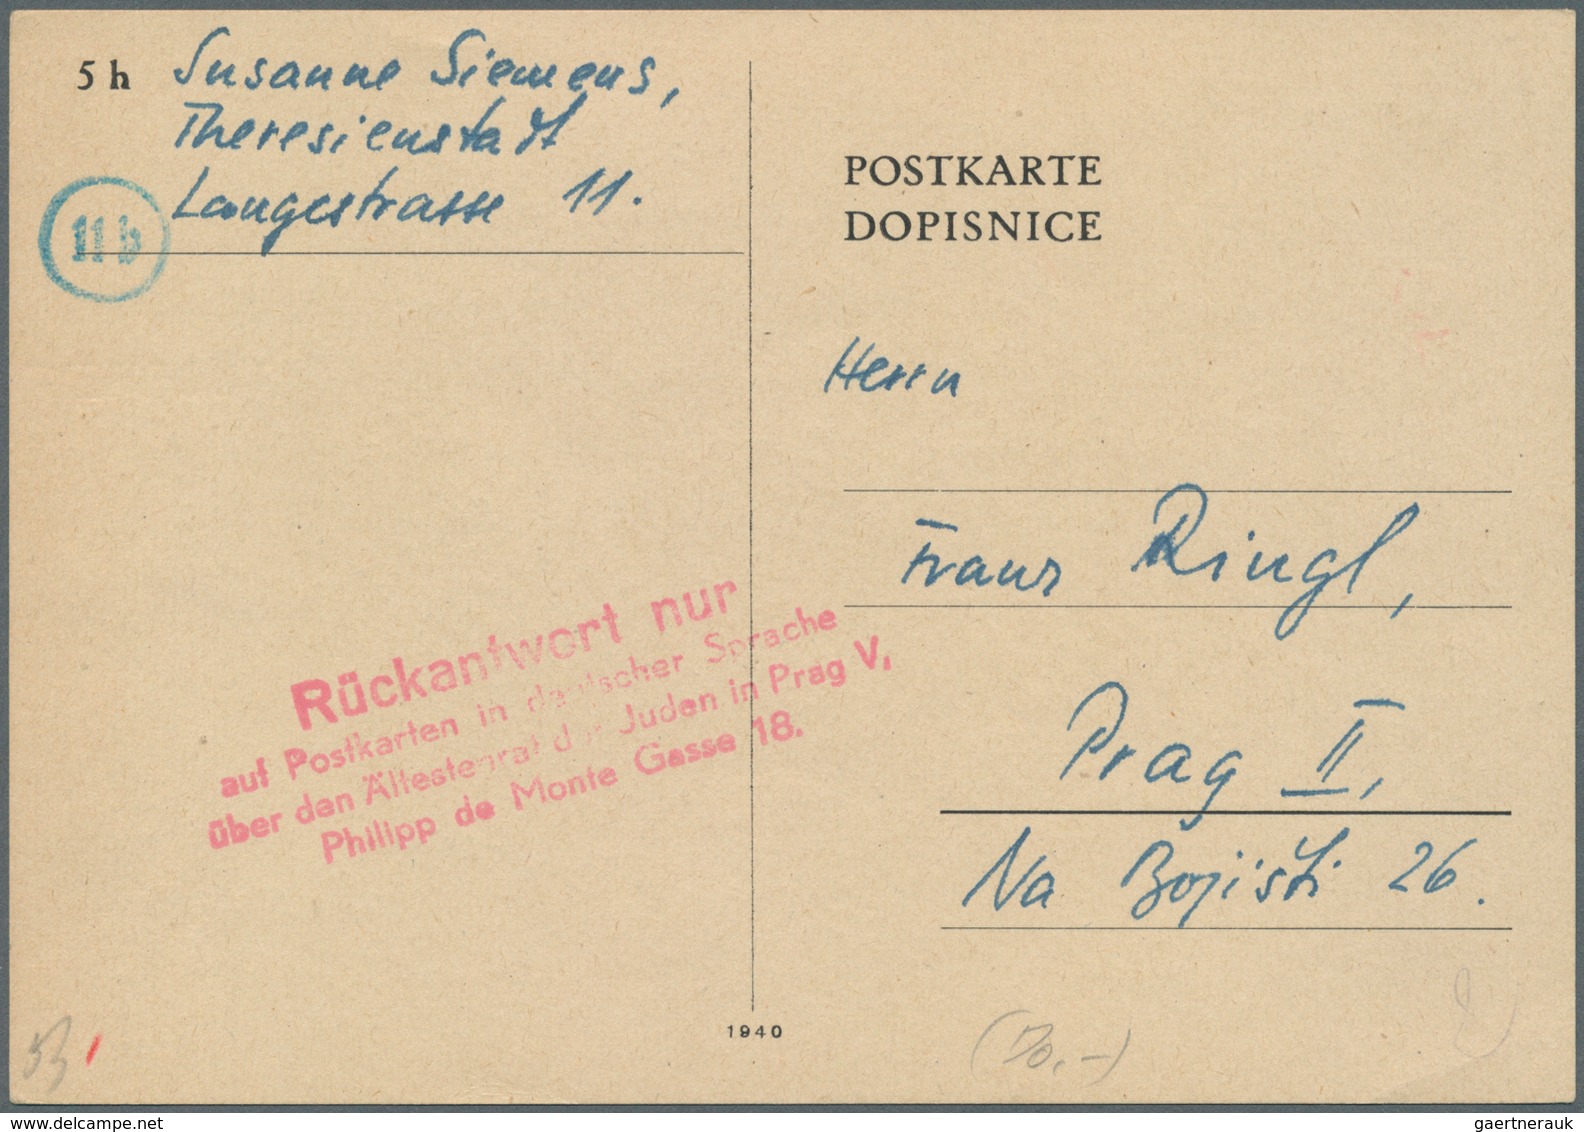 5 h
Susanne Siemens,
Theresienstadt
Langestrasse 11.
11 b
POSTKARTE
DOPISNICE
Herrn
Franz Ringl,
Prag II,
Na Bojisti 26.
Rückantwort nur
auf Postkarten in deutscher Sprache
über den Ältestenrat der Juden in Prag V,
Philipp de Monte Gasse 18.
1940
www.delcampe.net
gaertnerauk